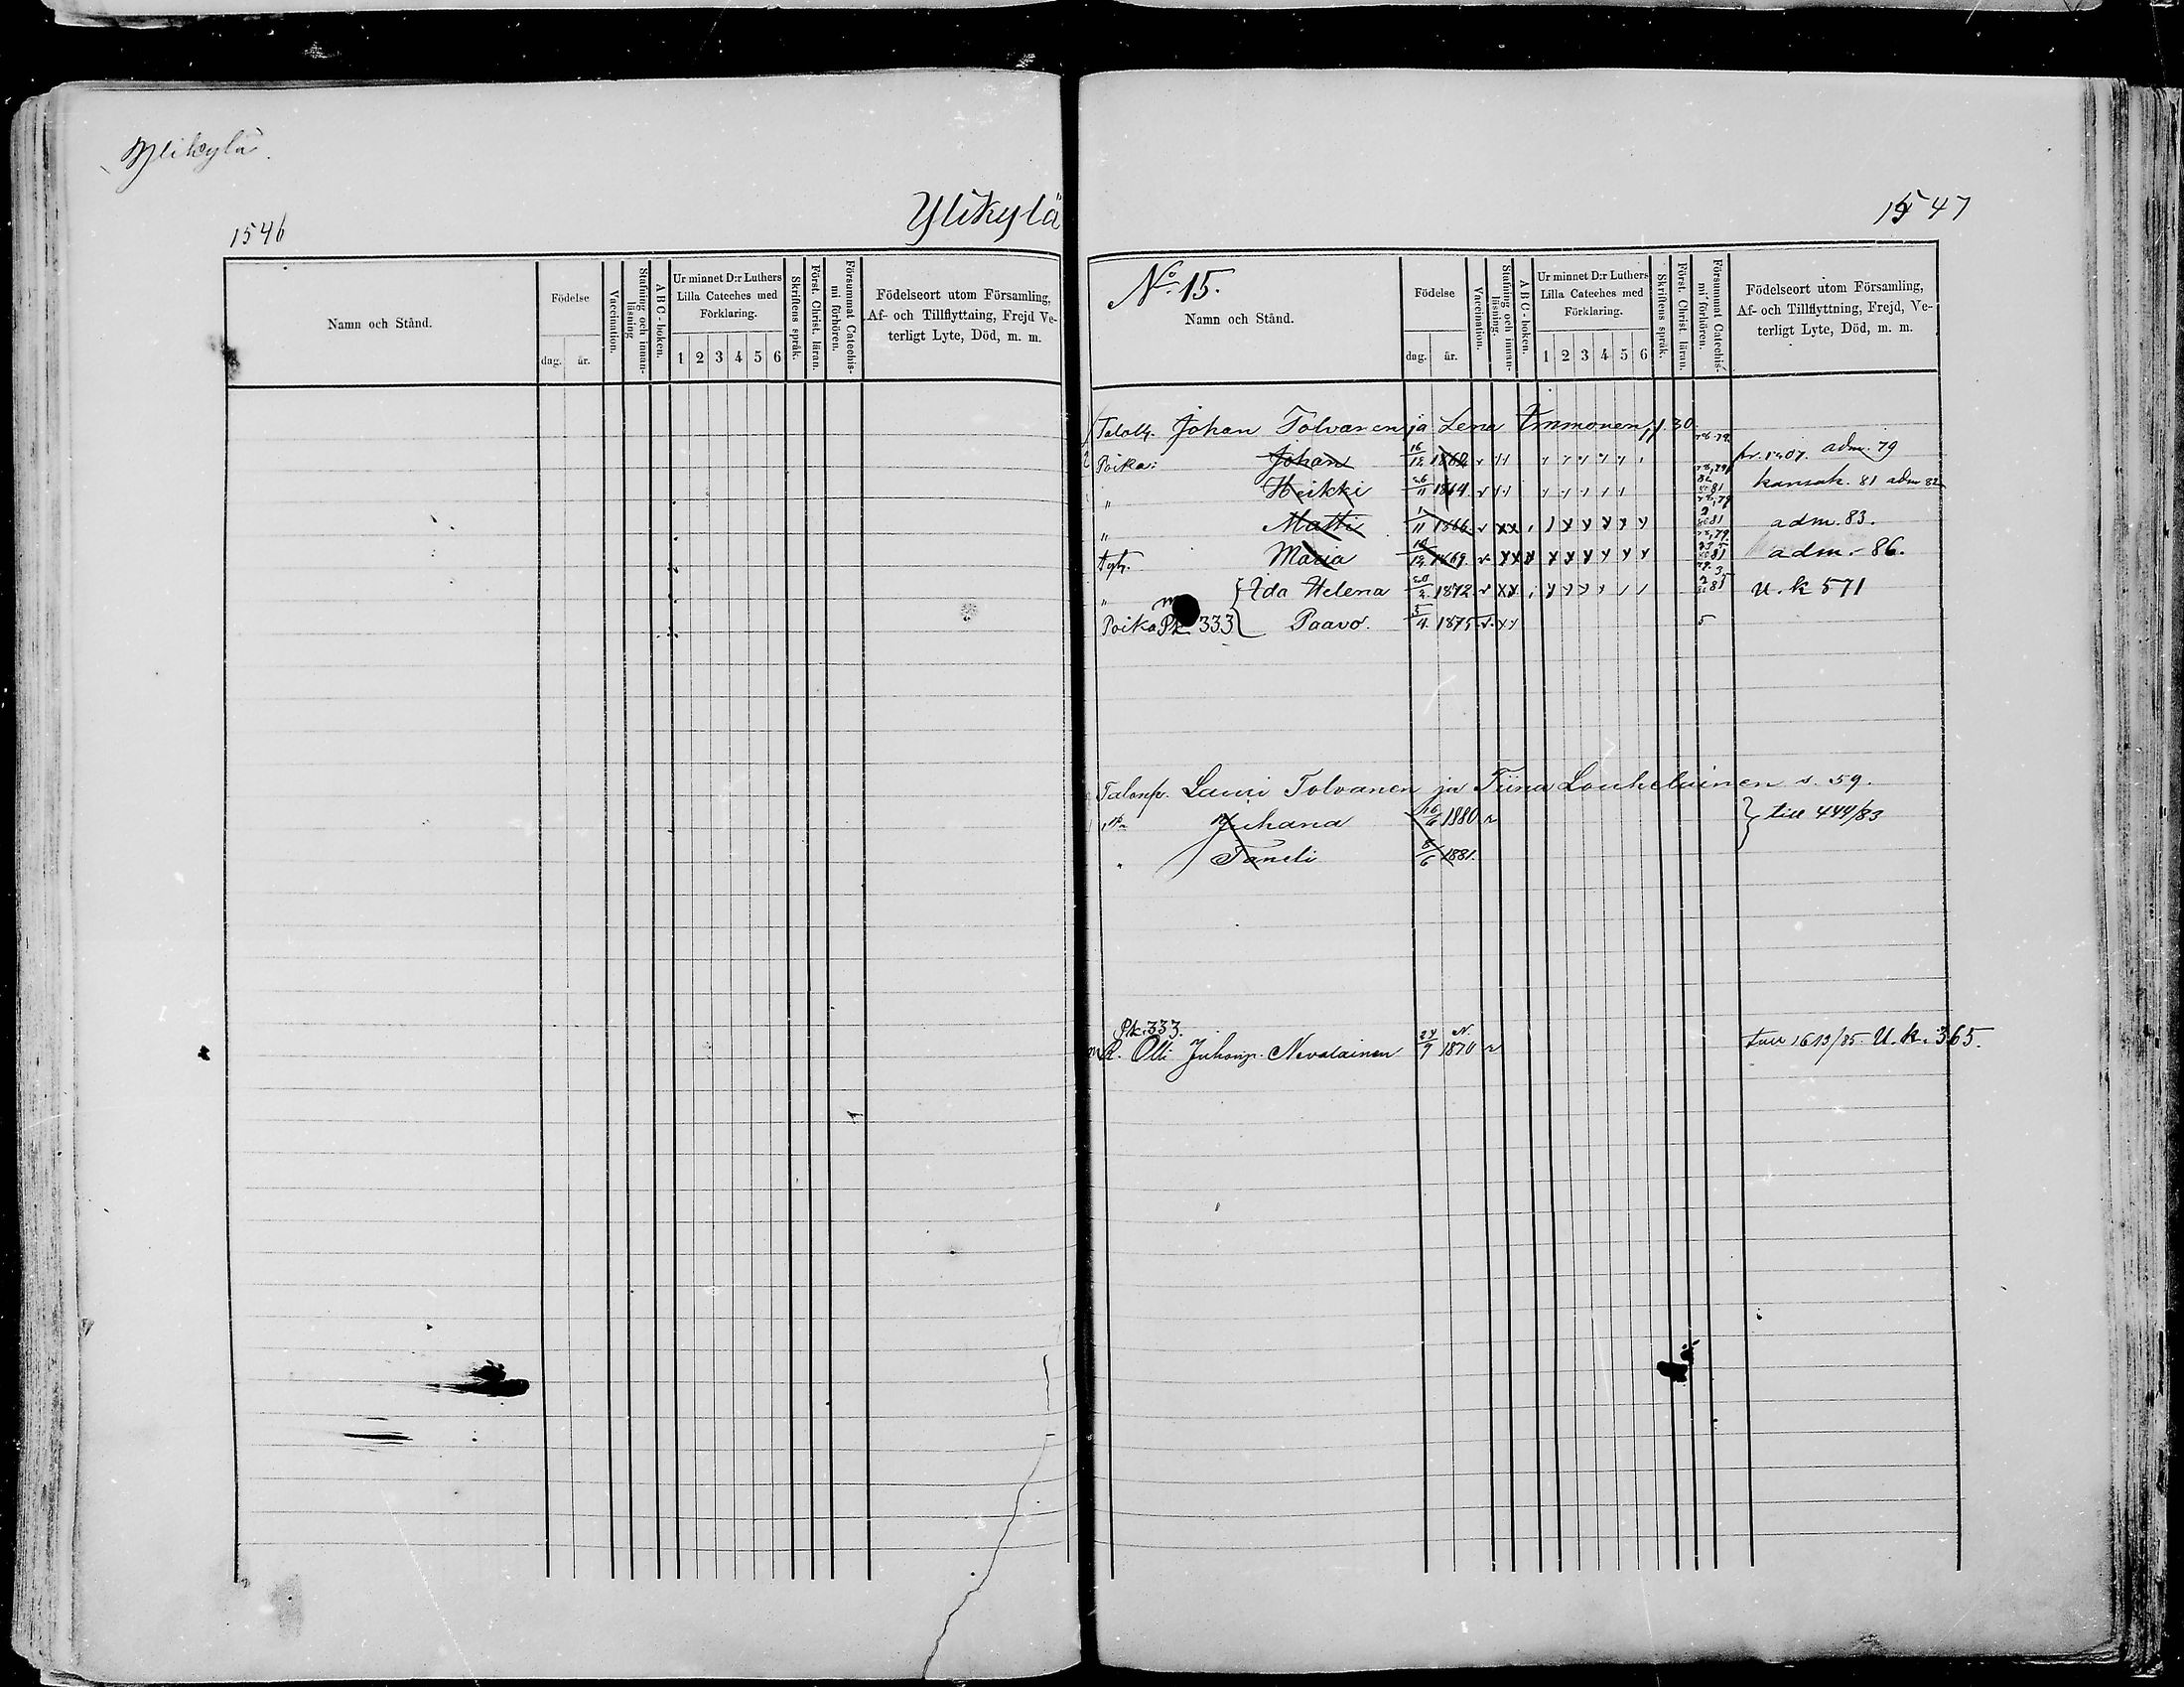 Ylikylä
1546
Ylikylä
1547
Namn och Stånd.
Födelse
dag. år.
Vaccination.
Stafning och innanläsning
A B C - boken.
Ur minnet D:r Luthers Lilla Cateches med Förklaring.
1 2 3 4 5 6
Skriftens språk.
Först. Christ. läran.
Försummat Catechismi förhören.
Födelseort utom Församling, Af- och Tillflyttning, Frejd Veterligt Lyte, Död, m. m.
No. 15.
Namn och Stånd.
Födelse
dag. år.
Vaccination.
Stafning och innanläsning.
A B C - boken.
Ur minnet D:r Luthers Lilla Cateches med Förklaring.
1 2 3 4 5 6
Skriftens språk.
Först. Christ. läran.
Försummat Catechismi förhören.
Födelseort utom Församling, Af- och Tillflyttning, Frejd, Veterligt Lyte, Död, m. m.
Johan Tolvanen ja Lena Immonen 30
Poika: Johan 16/12 1862 78.79. adm. 79
" Heikki 26/11 1864 kansak. 81 adm 82
" Matti 1/11 1866 adm. 83.
tyt. Maria 1869 adm. 86.
" Ida Helena 20/2 1872 U. k 571
Poika Pk. 333 Paavo. 5/4 1875 5
Talonp. Lauri Tolvanen ja Tiina Louhelainen s. 59.
Juhana 16/6 1880 till 444/83
" Taneli 8/6 1881.
Pk. 333.
Olli Juhonp. Nevalainen 24/9 1870 1613/85. U. k. 365.